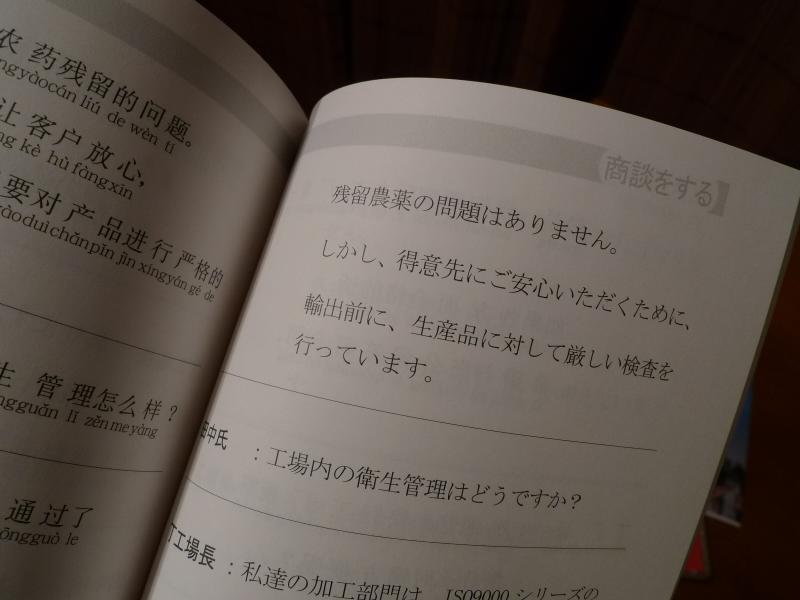 农药残留的问题。
ngyàocán liú de wèn tí
让客户放心,
ng kè hù fàngxīn
要对产品进行严格的
yàoduìchǎnpǐn jìn xíngyán gé de
生 管理怎么样？
ngguǎn lǐ zěnmeyàng
通过了
ōngguò le
商談をする】
残留農薬の問題はありません。
しかし、得意先にご安心いただくために、
輸出前に、生産品に対して厳しい検査を
行っています。
田中氏 ：工場内の衛生管理はどうですか？
丁工場長 ：私達の加工部門は、ISO9000シリーズの